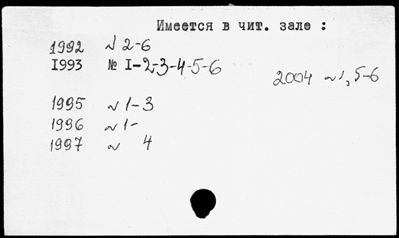 Имеется в чит. зале :
1992 № 2-6
1993 № 1-2-3-4-5-6
2004 № 1, 5-6
1995 № 1-3
1996 № 1-
1997 № 4